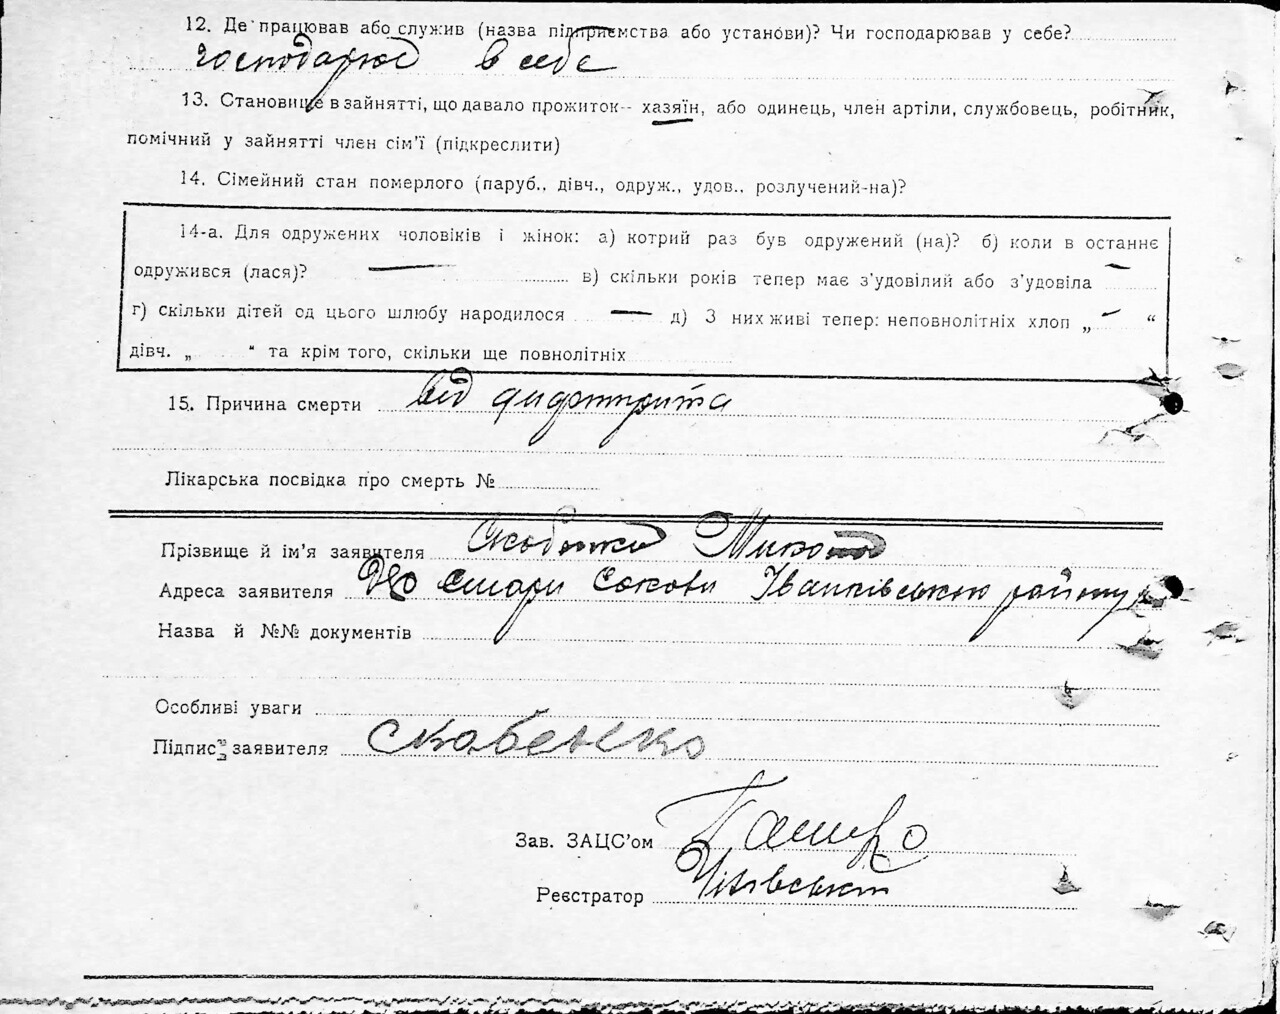 12. Де працював або служив (назва підприємства або установи)? Чи господарював у себе?
господарює в себе
13. Становище в зайнятті, що давало прожиток-- хазяїн, або одинець, член артіли, службовець, робітник,
помічний у зайнятті член сім'ї (підкреслити)
14. Сімейний стан померлого (паруб., дівч., одруж., удов., розлучений-на)?
14-а. Для одружених чоловіків і жінок: а) котрий раз був одружений (на)? б) коли в останнє
одружився (лася)? — в) скільки років тепер має з'удовілий або з'удовіла —
г) скільки дітей од цього шлюбу народилося — д) З них живі тепер: неповнолітніх хлоп „ — “
дівч. „ “ та крім того, скільки ще повнолітніх
15. Причина смерти від
Лікарська посвідка про смерть №
Прізвище й ім'я заявителя
Адреса заявителя Іванківського району
Назва й №№ документів
Особливі уваги
Підпис заявителя Скобенко
Зав. ЗАЦС'ом
Реєстратор